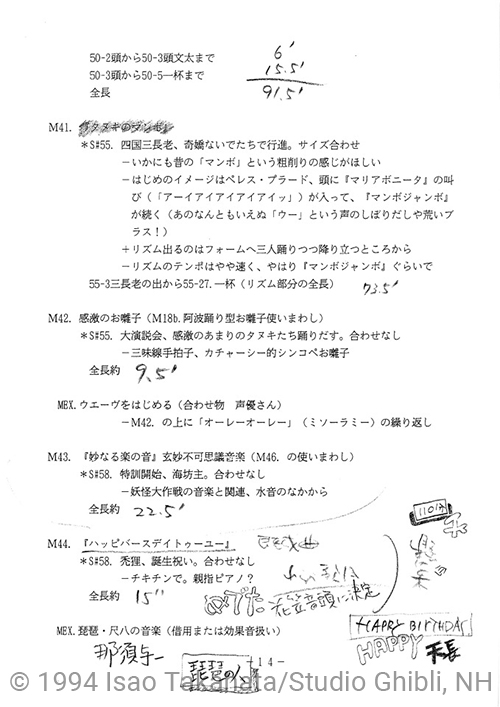 50-2頭から50-3頭文太まで 6'
50-3頭から50-5一杯まで 15.5'
全長 91.5'
M41.
*S#55. 四国三長老、奇嬌ないでたちで行進。サイズ合わせ
−いかにも昔の「マンボ」という粗削りの感じがほしい
−はじめのイメージはペレス・プラード、頭に『マリアボニータ』の叫
び(「アーイアイアイアイアイッ」)が入って、『マンボジャンボ』
が続く(あのなんともいえぬ「ウー」という声のしぼりだしや荒いブ
ラス!)
+リズム出るのはフォームへ三人踊りつつ降り立つところから
−リズムのテンポはやや速く、やはり『マンボジャンボ』ぐらいで
55-3三長老の出から55-27.一杯(リズム部分の全長) 73.5'
M42. 感激のお囃子(M18b.阿波踊り型お囃子使いまわし)
*S#55. 大演説会、感激のあまりのタヌキたち踊りだす。合わせなし
−三味線手拍子、カチャーシー的シンコペお囃子
全長約 9.5'
MEX.ウエーヴをはじめる(合わせ物 声優さん)
−M42. の上に「オーレーオーレー」(ミソーラミー)の繰り返し
M43. 『妙なる楽の音』玄妙不可思議音楽(M46. の使いまわし)
*S#58. 特訓開始、海坊主。合わせなし
−妖怪大作戦の音楽と関連、水音のなかから
全長約 22.5'
M44. 『ハッピバースデイトゥーユー』
*S#58. 禿狸、誕生祝い。合わせなし
−チキチンで。親指ピアノ?
全長約 15"
花笠音頭に決定
HAPPY BIRTHDAY
HAPPY
MEX.琵琶・尺八の音楽(借用または効果音扱い)
那須与一
琵琶の人
-14-
© 1994 Isao Takahata/Studio Ghibli, NH